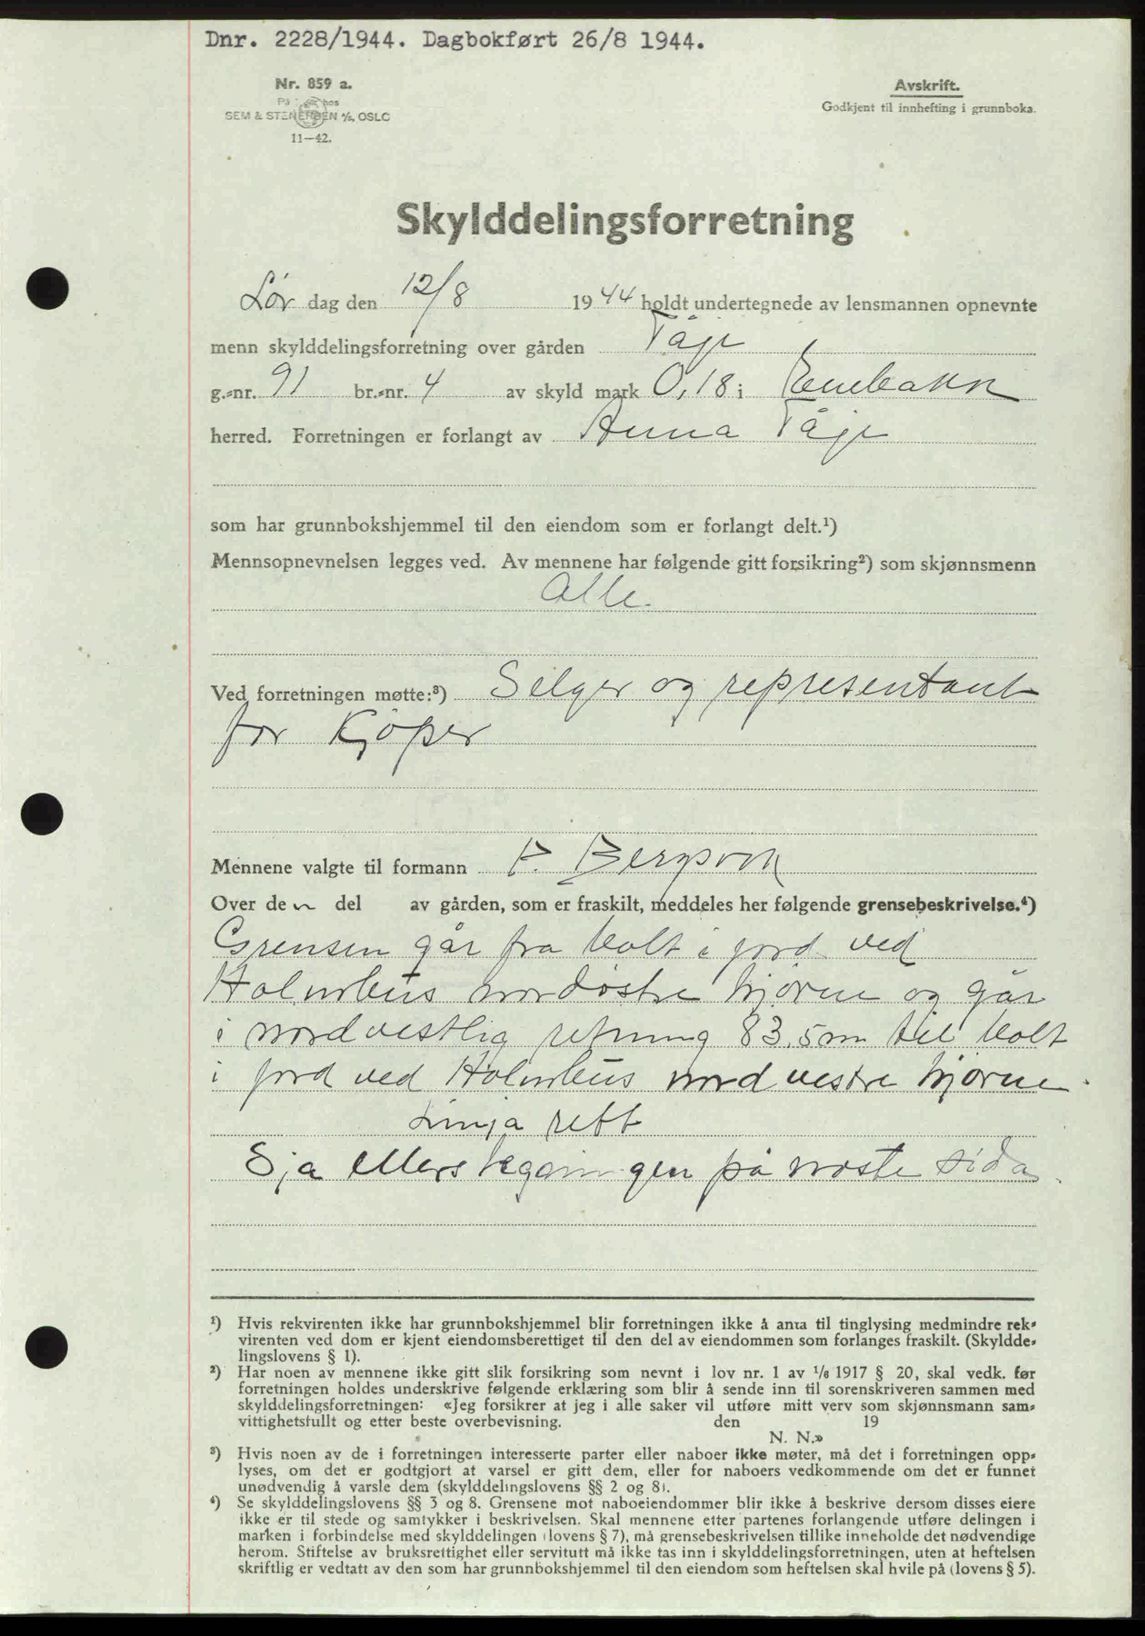 Dnr. 2228/1944. Dagbokført 26/8 1944.
Nr. 859 a.
SEM & STENERSEN A/S, OSLO
11—42.
Avskrift.
Godkjent til innhefting i grunnboka.
Skylddelingsforretning
Lør dag den 12/8 1944 holdt undertegnede av lensmannen opnevnte
menn skylddelingsforretning over gården Tåje
g.-nr. 91 br.-nr. 4 av skyld mark 0,18 i Enebakk
herred. Forretningen er forlangt av Anna Tåje
som har grunnbokshjemmel til den eiendom som er forlangt delt.¹)
Mennsopnevnelsen legges ved. Av mennene har følgende gitt forsikring²) som skjønnsmenn
Alle.
Ved forretningen møtte:³) Selger og representant
for Kjøper
Mennene valgte til formann P.
Over den del av gården, som er fraskilt, meddeles her følgende grensebeskrivelse.⁴)
Grensen går fra bolt i jord ved
nordøstre hjørne og går
i nordvestlig retning 83,5 m til bolt
i jord ved nordvestre hjørne.
Linja rett
Sja på neste sida
¹) Hvis rekvirenten ikke har grunnbokshjemmel blir forretningen ikke å anta til tinglysing medmindre rek-
virenten ved dom er kjent eiendomsberettiget til den del av eiendommen som forlanges fraskilt. (Skyldde-
lingslovens § 1).
²) Har noen av mennene ikke gitt slik forsikring som nevnt i lov nr. 1 av 1/6 1917 § 20, skal vedk. før
forretningen holdes underskrive følgende erklæring som blir å sende inn til sorenskriveren sammen med
skylddelingsforretningen: «Jeg forsikrer at jeg i alle saker vil utføre mitt verv som skjønnsmann sam-
vittighetsfullt og etter beste overbevisning. den 19
N. N.»
³) Hvis noen av de i forretningen interesserte parter eller naboer ikke møter, må det i forretningen opp-
lyses, om det er godtgjort at varsel er gitt dem, eller for naboers vedkommende om det er funnet
unødvendig å varsle dem (skylddelingslovens §§ 2 og 8).
⁴) Se skylddelingslovens §§ 3 og 8. Grensene mot naboeiendommer blir ikke å beskrive dersom disses eiere
ikke er til stede og samtykker i beskrivelsen. Skal mennene etter partenes forlangende utføre delingen i
marken i forbindelse med skylddelingen (lovens § 7), må grensebeskrivelsen tillike inneholde det nødvendige
herom. Stiftelse av bruksrettighet eller servitutt må ikke tas inn i skylddelingsforretningen, uten at heftelsen
skriftlig er vedtatt av den som har grunnbokshjemmel til den eiendom som heftelsen skal hvile på (lovens § 5).